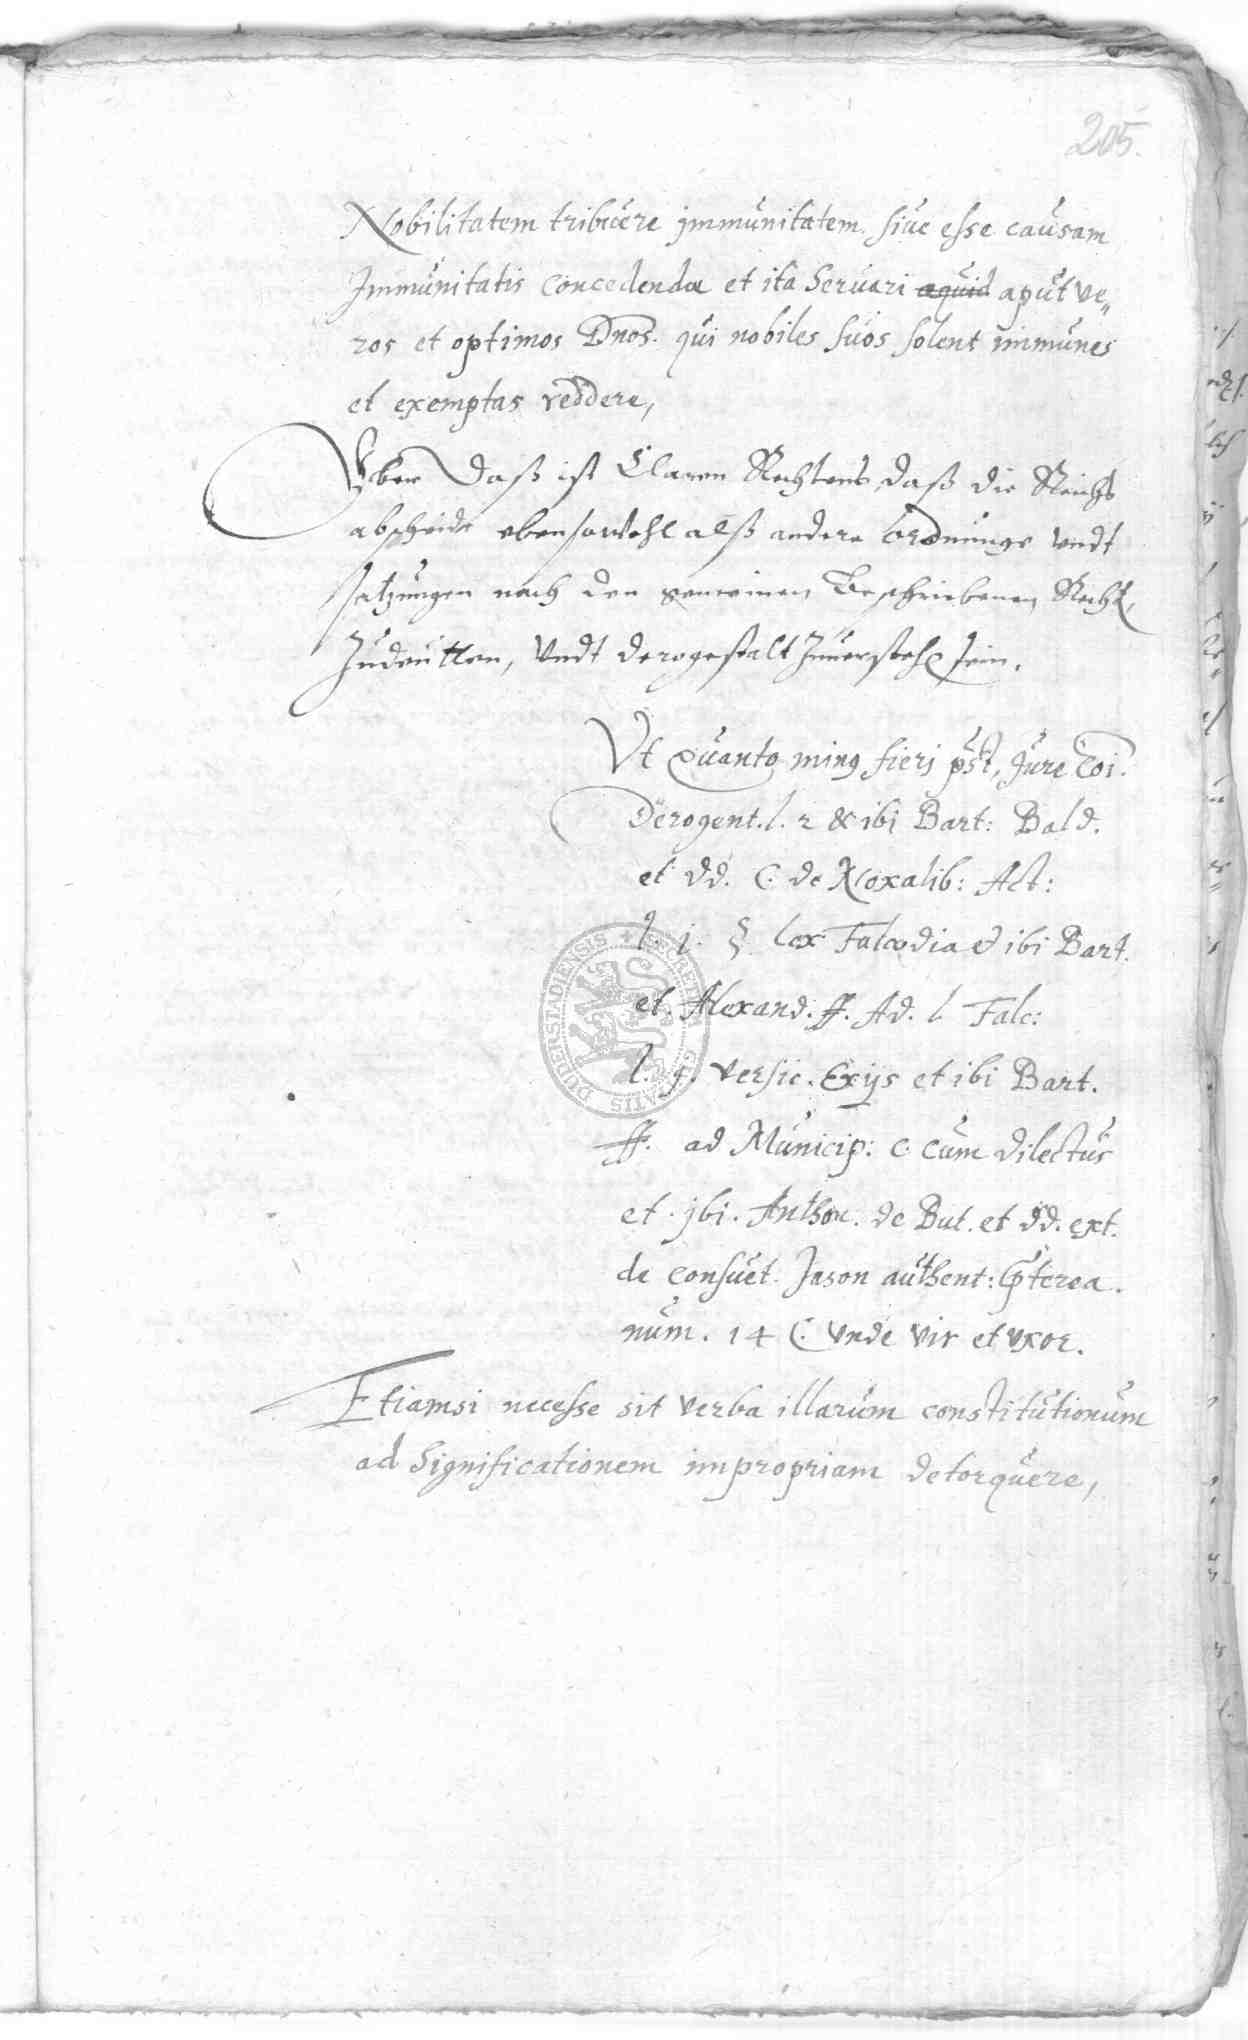 205.
Nobilitatem tribuere jmmunitatem. siue esse causam
Jmmunitatis concedendæ et ita Seruari aquid aput ve„
ros et optimos Dnos. qui nobiles suos solent immunes
et exemptas reddere,
Vber daß ist Claren Rechtens, daß die Reichs
abscheide ebensowohl alß andere Ordnunge vndt
satzungen nach den gemeinen Beschriebenen Recht,
Zudeutten, Vndt derogestalt Zuuersteh sein.
Vt Quanto ming fieri pst, Jure coi.
Derogent. l. 2 & ibi Bart: Bald.
et dd. C. de Noxalib: Act:
l. j. § lex Falcidia & ibi Bart.
et. Alexand. ff. Ad. l. Falc:
l. versic. Exijs et ibi Bart.
ff. ad Municip: c. cum dilectus
et. jbi. Anthon. de But. et dd. ext.
de consuet. Jason authent: pterea.
num. 14 C. vnde vir et vxor.
Etiamsi necesse sit verba illarum constitutionum
ad Significationem impropriam detorquere,
SECRETUM
DUDERSTADIENSIS